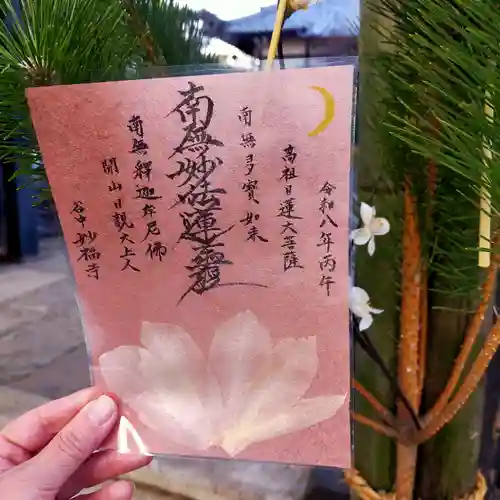 令和八年丙午
高祖日蓮大菩薩
南無多寳如来
南無妙法蓮華経
南無釋迦牟尼佛
開山日観大上人
谷中妙福寺